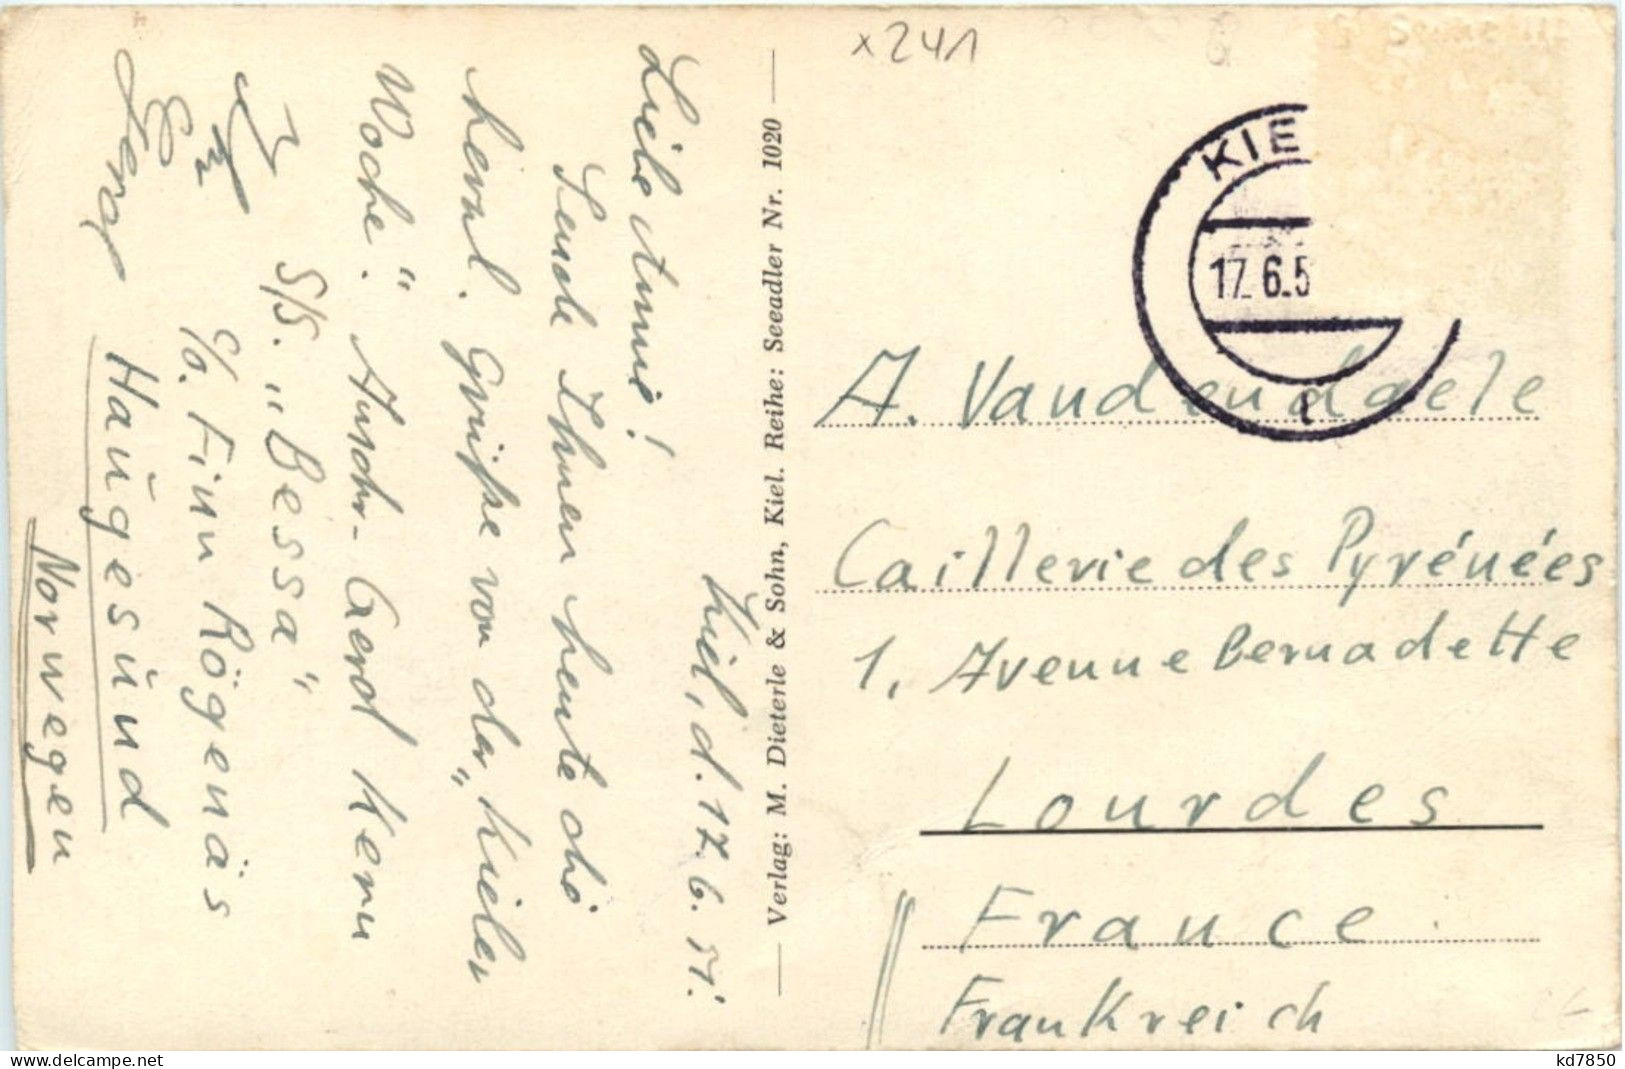 x241
Kiel, d. 17. 6. 51.
Liebe Annie!
Sende Ihnen heute die
herzl. Grüße von der „Kieler
Woche". Anschr. Gerd Kern
S/S. „Bessa"
c/o. Finn Rögenäs
Haugesund
Norwegen
Verlag: M. Dieterle & Sohn, Kiel. Reihe: Seeadler Nr. 1020
KIE
17.6.5
A. Vandendaele
Caillerie des Pyrénées
1, Avenue Bernadette
Lourdes
France
Frankreich
kd7850